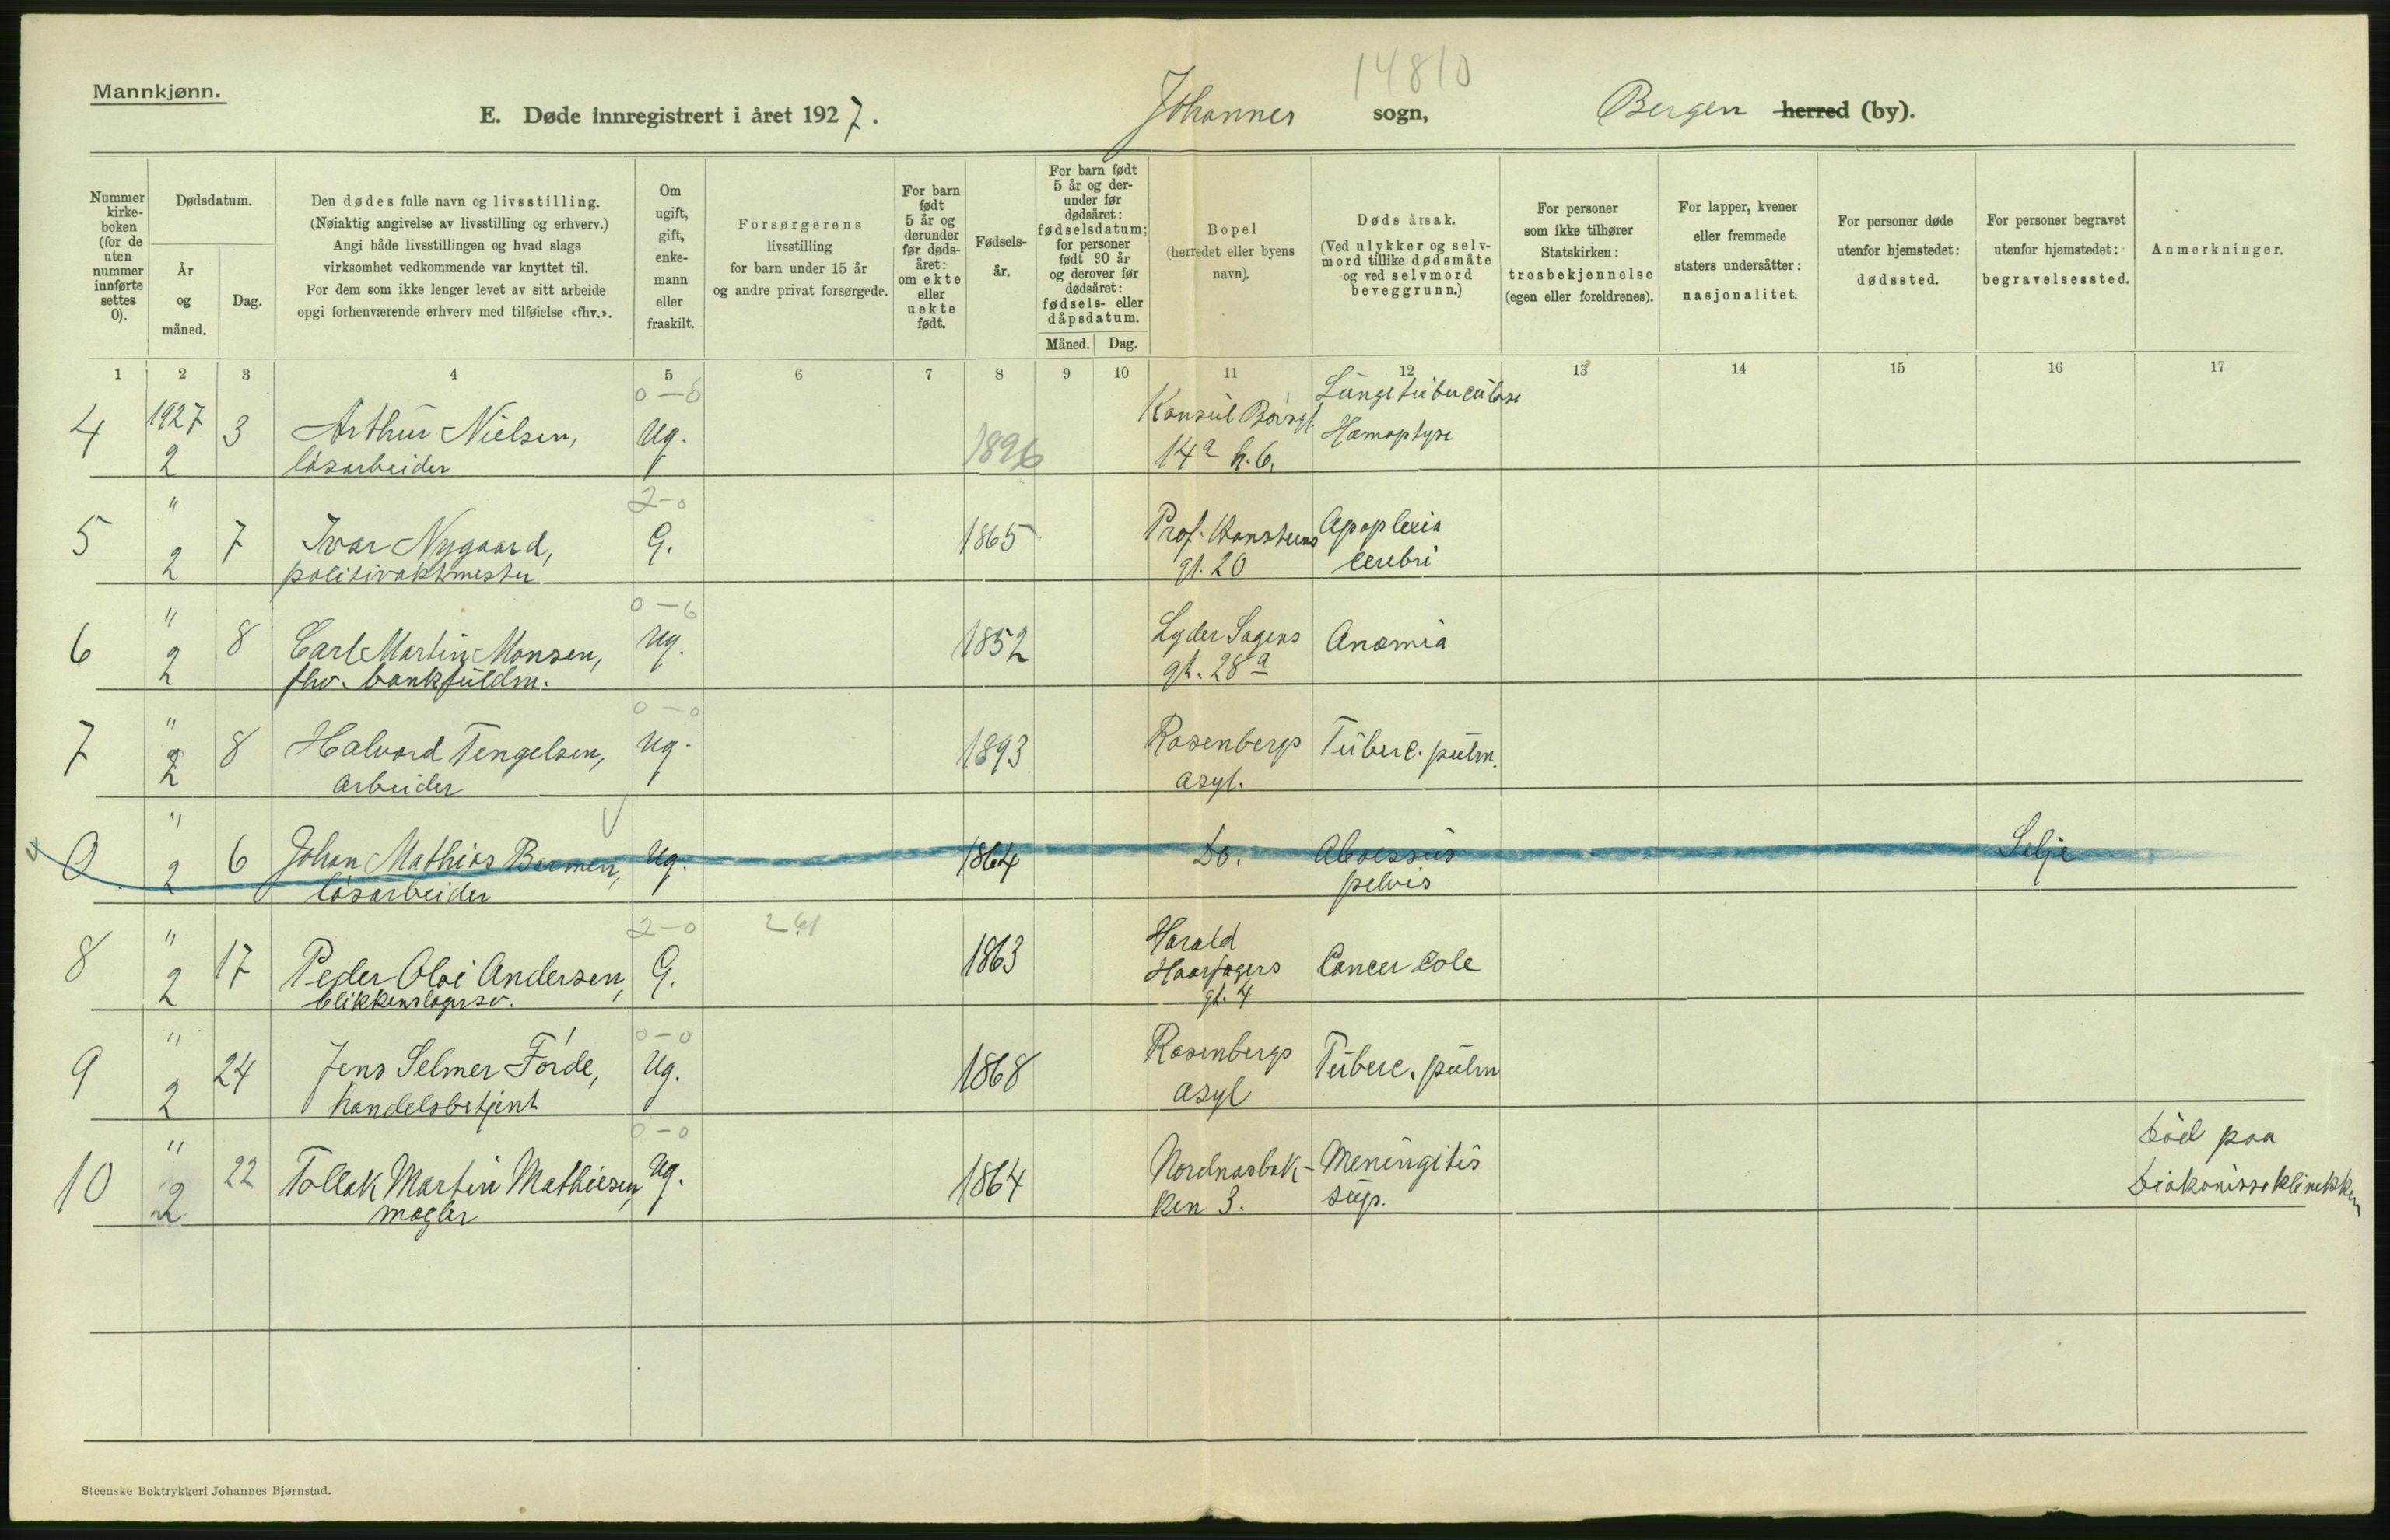 14810
Mannkjønn.
E. Døde innregistrert i året 1927. Johannes sogn, Bergen herred (by).
Nummer kirke-boken (for de uten nummer innførte settes 0).
Dødsdatum.
År og måned.
Dag.
Den dødes fulle navn og livsstilling.
(Nøiaktig angivelse av livsstilling og erhverv.)
Angi både livsstillingen og hvad slags
virksomhet vedkommende var knyttet til.
For dem som ikke lenger levet av sitt arbeide
opgi forhenværende erhverv med tilføielse «fhv.».
Om ugift, gift, enke-mann eller fraskilt.
Forsørgerens
livsstilling
for barn under 15 år
og andre privat forsørgede.
For barn født 5 år og derunder før døds-året: om ekte eller uekte født.
Fødsels-år.
For barn født 5 år og der-under før dødsåret: fødselsdatum; for personer født 90 år og derover før dødsåret: fødsels- eller dåpsdatum.
Måned. Dag.
Bopel
(herredet eller byens
navn).
Døds årsak.
(Ved ulykker og selv-
mord tillike dødsmåte
og ved selvmord
beveggrunn.)
For personer
som ikke tilhører
Statskirken:
trosbekjennelse
(egen eller foreldrenes).
For lapper, kvener
eller fremmede
staters undersåtter:
nasjonalitet.
For personer døde
utenfor hjemstedet:
dødssted.
For personer begravet
utenfor hjemstedet:
begravelsessted.
Anmerkninger.
1 2 3 4 5 6 7 8 9 10 11 12 13 14 15 16 17
0-0 Lungetuberculose
4 1927 3 Arthur Nielsen, Ug. 1896 Konsul Børsgt. Hæmoptyse
2 løsarbeider 14a h.6.
" 2-0
5 7 Ivar Nygaard, G. 1865 Prof. Hansteens Apoplexia
2 politivaktmester gt. 20 cerebri
" 0-6
6 8 Carl Martin Monsen, Ug. 1852 Lyder Sagens Anæmia
2 fhv. bankfuldm. gt. 28a
" 0-0
7 8 Halvard Tengelsen, Ug. 1893 Rosenbergs Tuberc. pulm.
2 arbeider asyl.
"
0 6 Johan Mathias Barmen, Ug. 1864 Do. Abscessus Selje
2 løsarbeider pelvis
" 2-0 Harald
8 17 Peder Olai Andersen, G. 1863 Haarfagers Cancer cole
2 blikkenslagersv. gt. 4
" 0-0
9 24 Jens Selmer Førde, Ug. 1868 Rosenbergs Tuberc. pulm
2 handelsbetjent asyl
" 0-0 Død paa
10 22 Tollak Martin Mathiesen, Ug. 1864 Nordnæsbak- Meningitis Diakonisseklinikken
2 mægler ken 3. sup.
Steenske Boktrykkeri Johannes Bjørnstad.